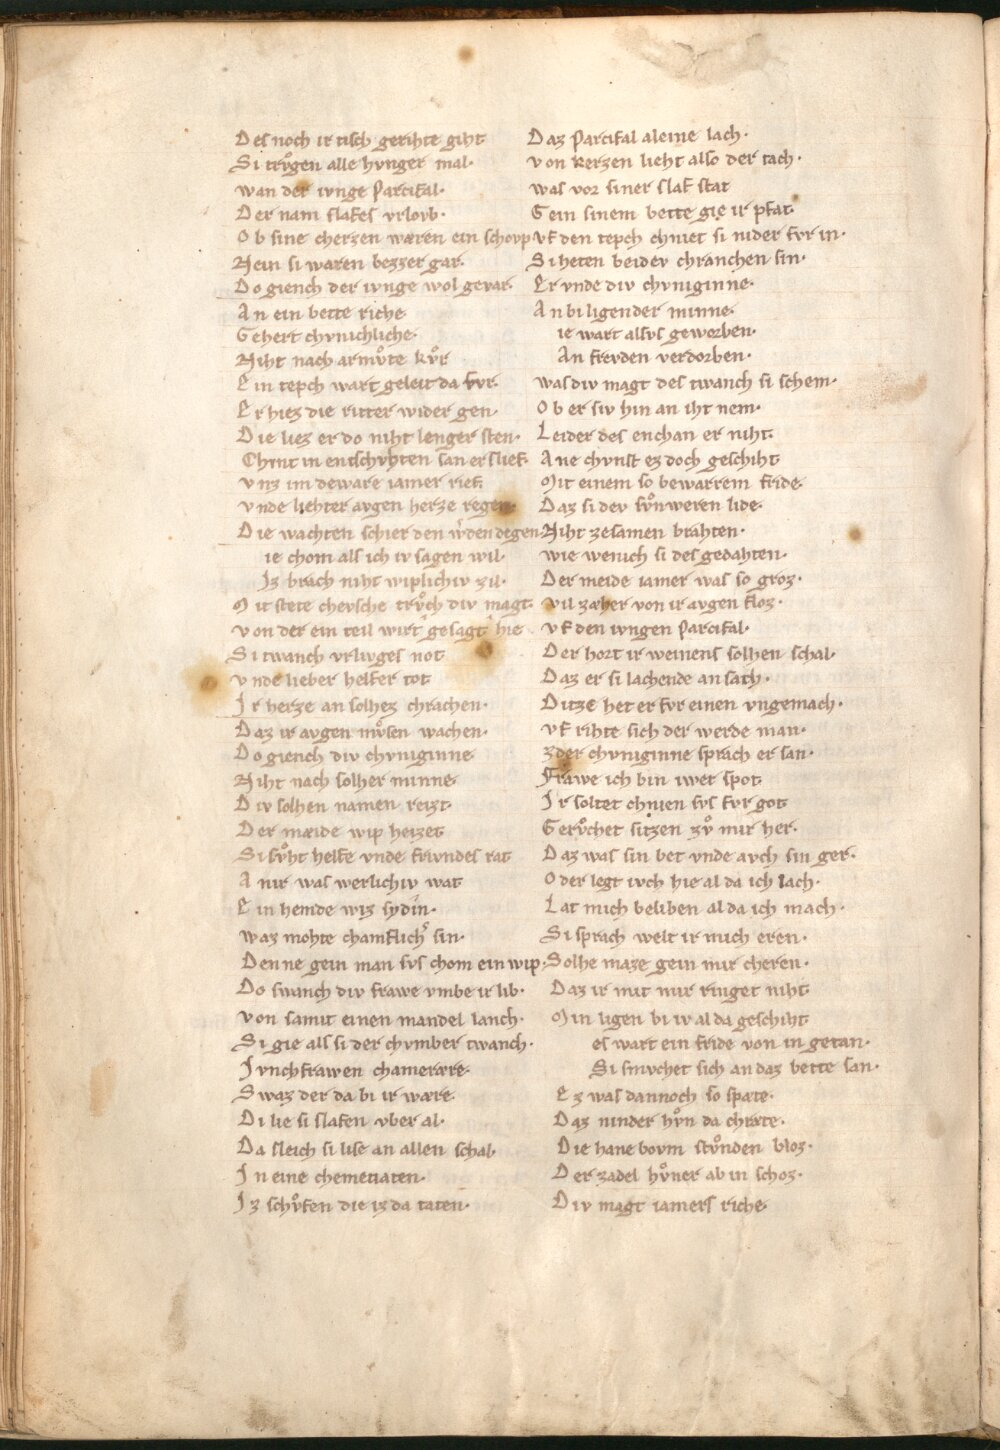 Des noch ir tisch gerihte giht
Si trvͦgen alle hvnger mal·
wan der ivnge Parcifal·
Der nam slafes vrlovb·
Ob sine cherzen wæren ein schovp
Nein si waren bezzer gar·
Do giench der ivnge wol gevar·
An ein bette riche
Gehert chvnichliche·
Niht nach armvͦte kvͦr
Ein tepch wart geleit da fvr·
Er hiez die ritter wider gen·
Die liez er do niht lenger sten·
Chint in entschvhten san er slief·
vnz im deware iamer rief
vnde liehter avgen herze regen
Die wachten schier den w̓den degen·
ie chom als ich iv sagen wil·
Iz brach niht wiplichiv zil·
Mit stete chevsche trvͦch div magt·
von der ein teil wirt gesagt hie
Si twanch vrlivges not
vnde lieber helfer tot
Ir herze an solhez chrachen·
Daz ir avgen mvͦsen wachen·
Do giench div chvniginne
Niht nach solher minne
Div solhen namen reizt
Der mæide wip heizet
Si svͦht helfe vnde frivndes rat
An ir was werlichiv wat
Ein hemde wiz sydin·
waz mohte chamflich̓ sin·
Denne gein man svs chom ein wip·
Do swanch div frawe vmbe ir lib·
von samit einen mandel lanch·
Si gie als si der chvmber twanch·
Ivnchfrawen chamerære
Swaz der da bi ir wære
Di lie si slafen vber al·
Da sleich si lise an allen schal
In eine chemenaten·
Iz schvͦfen die iz da taten·
Daz Parcifal aleine lach·
von kerzen lieht also der tach·
was vor siner slaf stat
Gein sinem bette gie ir pfat·
vf den tepch chniet si nider fvr in·
Si heten beidev chranchen sin·
Er vnde div chvniginne·
An bi ligender minne
ie wart alsvs geworben·
An frevden verdorben·
was div magt des twanch si schem·
Ob er siv hin an iht nem·
Leider des enchan er niht·
Ane chvnst ez doch geschiht
Mit einem so bewarrem fride
Daz si dev svͦnweren lide
Niht zesamen brahten·
wie wenich si des gedahten·
Der meide iamer was so groz·
vil zæher von ir avgen floz·
vf den ivngen Parcifal·
Der hort ir weinens solhen schal·
Daz er si lachende an sach·
Ditze het er fvr einen vngemach·
vf rihte sich der werde man·
zder chvniginne sprach er san·
Frawe ich bin iwer spot
Ir soltet chnien svs fvr got
Gervͦchet sitzen zvͦ mir her·
Daz was sin bet vnde avch sin ger·
Oder legt ivch hie al da ich lach·
Lat mich beliben al da ich mach·
Si sprach welt ir mich eren·
Solhe maze gein mir cheren·
Daz ir mit mir ringet niht
Min ligen bi iv al da geschiht
es wart ein fride von in getan·
Si smvchet sich an daz bette san·
Ez was dannoch so spæte·
Daz ninder hvͦn da chræte·
Die hane bovm stvͦnden bloz·
Der zadel hvͦner ab in schoz·
Div magt iamers riche